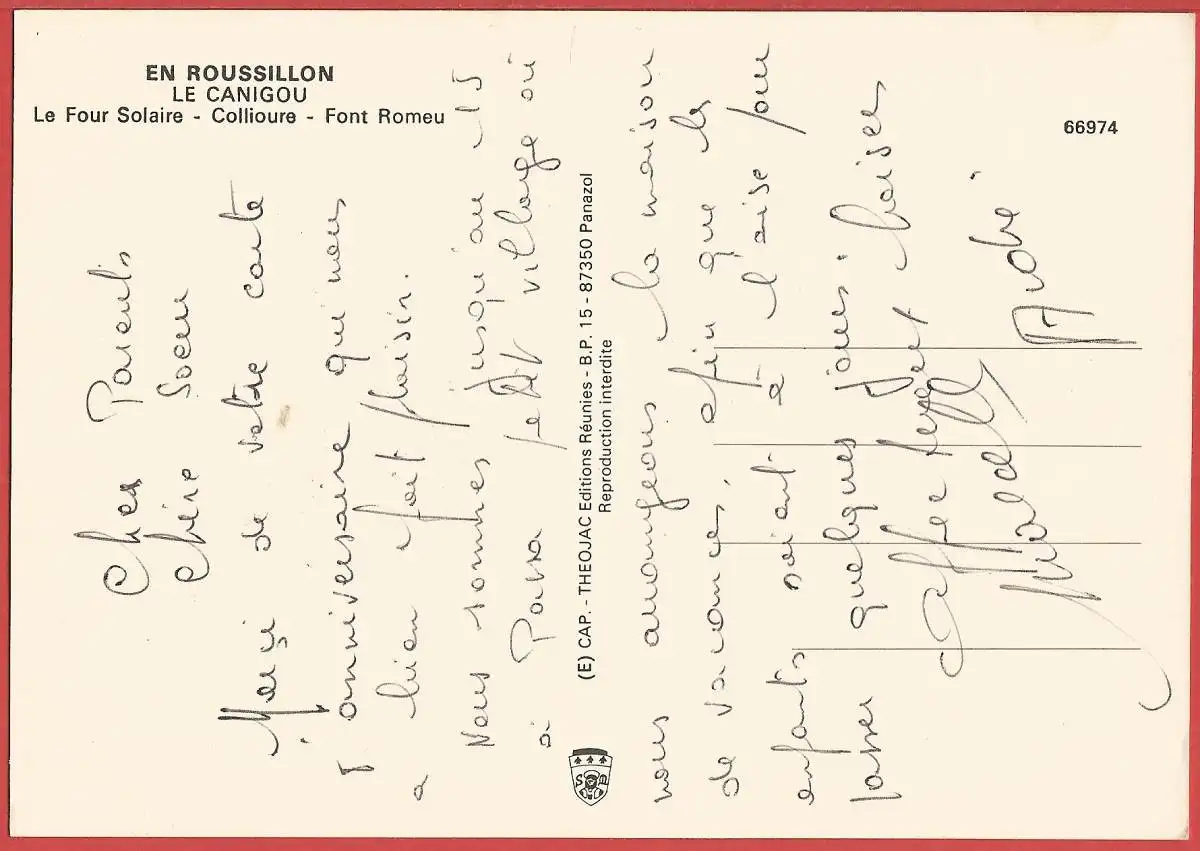 EN ROUSSILLON
LE CANIGOU
Le Four Solaire - Collioure - Font Romeu
66974
(E) CAP. - THEOJAC Editions Réunies - B.P. 15 - 87350 Panazol
Reproduction interdite
S M
Chers Parents
Chère Soeur
Merçi de votre carte
d'anniversaire qui nous
a bien fait plaisir.
Nous sommes jusqu'au 15
à petit village où
nous aménageons la maison
de vacances, afin que les
enfants soient à l'aise pour
passer quelques jours.
Affectueux baisers
André